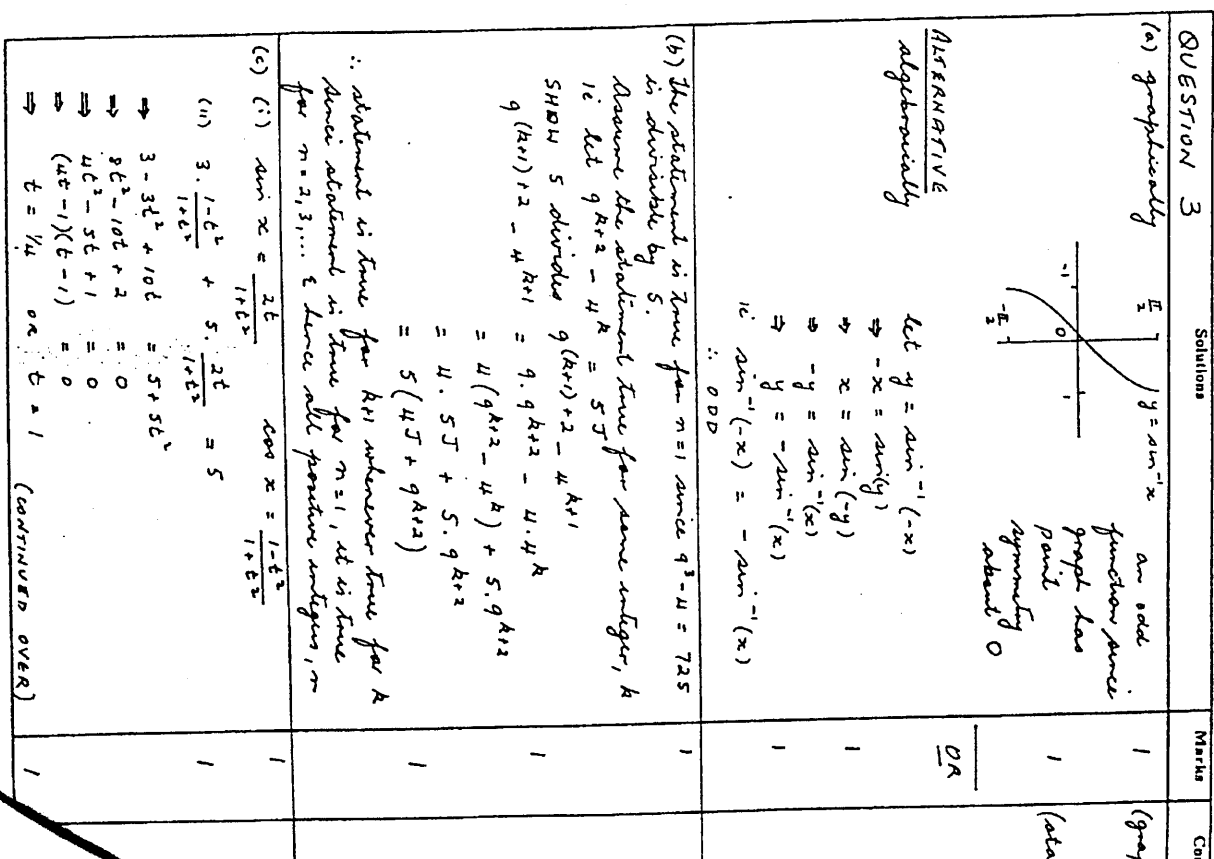 QUESTION 3
Solutions
Marks
Co
(a) graphically
π/2
y = sin⁻¹x
-1
0
1
-π/2
an odd
function since
graph has
point
symmetry
about 0
1
(grap
1
(sta
ALTERNATIVE
algebraically
OR
let y = sin⁻¹(-x)
⇒ -x = sin(y)
⇒ x = sin(-y)
1
⇒ -y = sin⁻¹(x)
⇒ y = -sin⁻¹(x)
1
ie sin⁻¹(-x) = -sin⁻¹(x)
∴ ODD
(b) The statement is true for n=1 since 9³-4 = 725
1
is divisible by 5.
Assume the statement true for some integer, k
ie let 9^(k+2) - 4^k = 5J
SHOW 5 divides 9^((k+1)+2) - 4^(k+1)
9^((k+1)+2) - 4^(k+1) = 9.9^(k+2) - 4.4^k
1
= 4(9^(k+2) - 4^k) + 5.9^(k+2)
= 4.5J + 5.9^(k+2)
= 5(4J + 9^(k+2))
1
∴ statement is true for k+1 whenever true for k
since statement is true for n=1, it is true
for n=2,3,... & hence all positive integers, n
(c) (i) sin x = 2t/(1+t²) cos x = (1-t²)/(1+t²)
1
(ii) 3. (1-t²)/(1+t²) + 5. 2t/(1+t²) = 5
1
⇒ 3 - 3t² + 10t = 5 + 5t²
⇒ 8t² - 10t + 2 = 0
⇒ 4t² - 5t + 1 = 0
⇒ (4t-1)(t-1) = 0
⇒ t = 1/4 OR t = 1 (CONTINUED OVER)
1